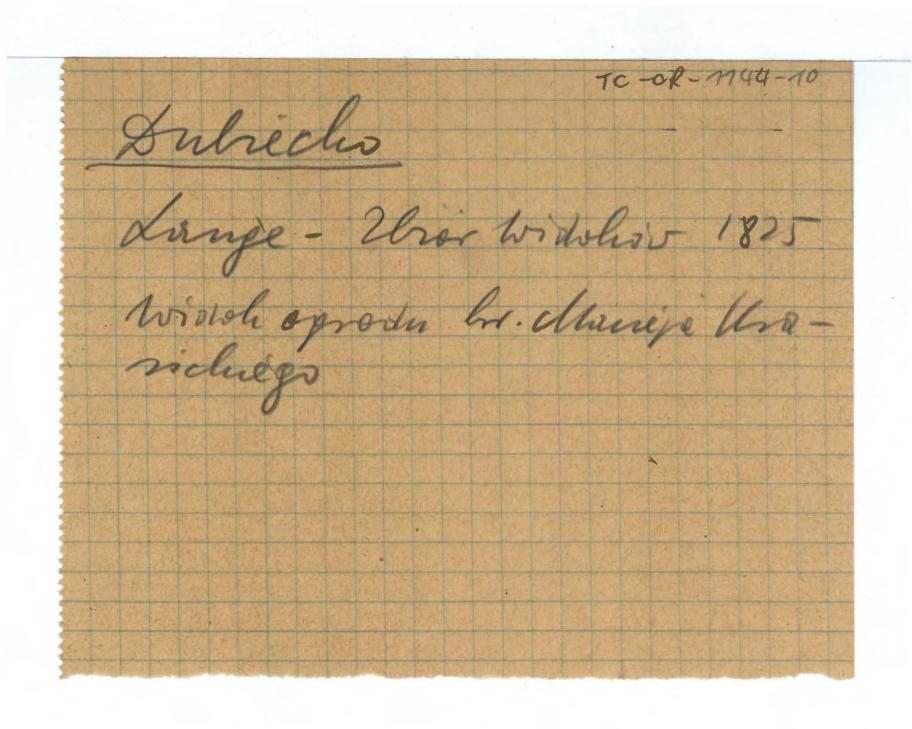 TC-OR-1144-10
Dubiecko
Lange - Zbiór widoków 1825
Widok ogrodu hr. Macieja Kra-
sickiego